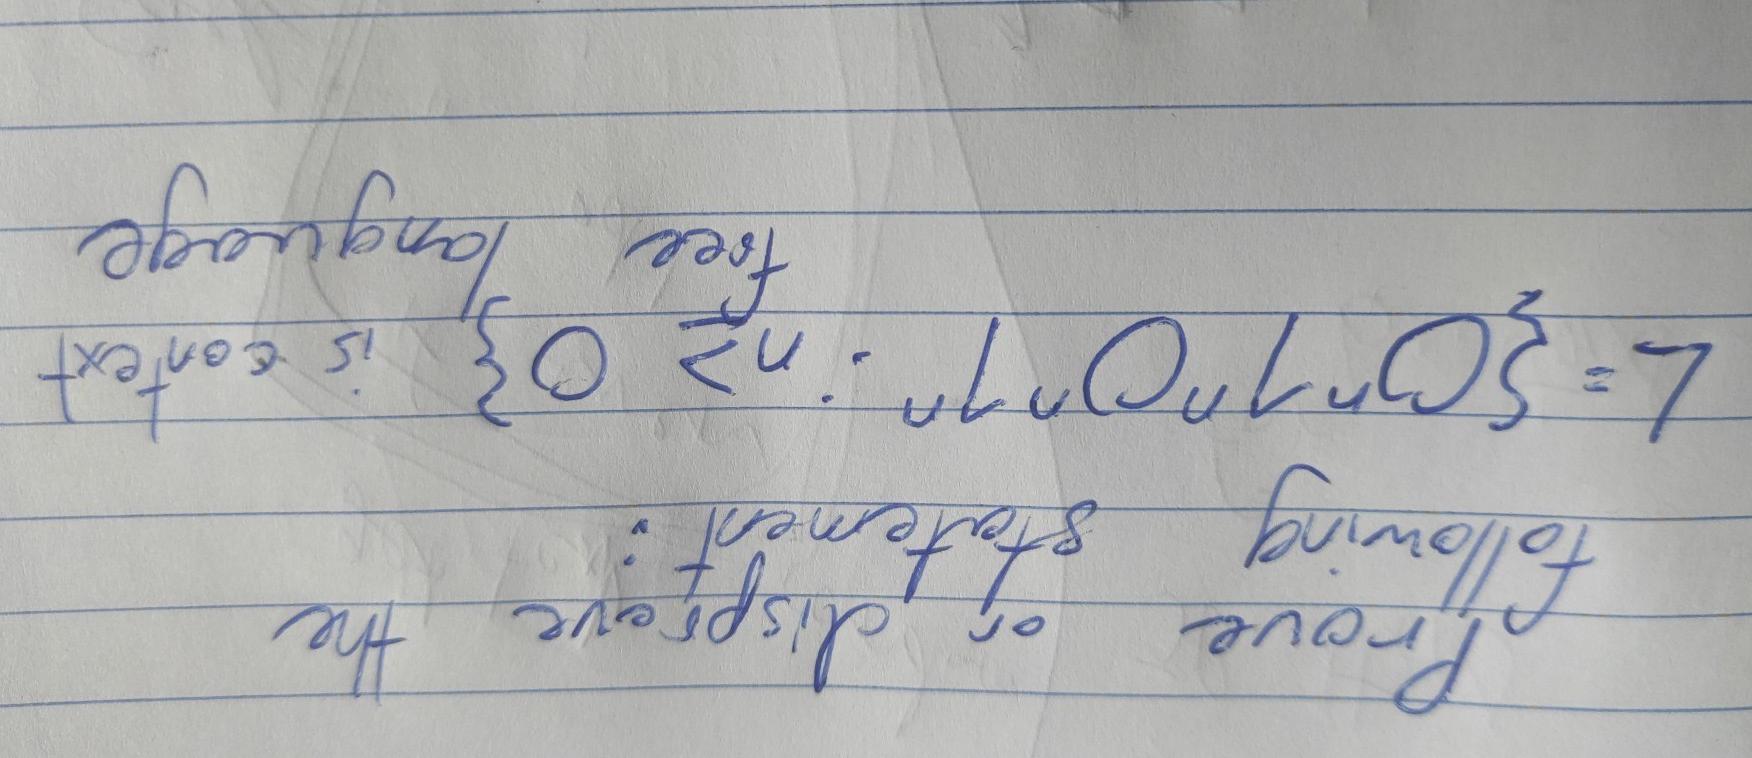 Prove or disprove the
following statement:
L = {0ⁿ1ⁿ0ⁿ1ⁿ : n ≥ 0} is context
free language